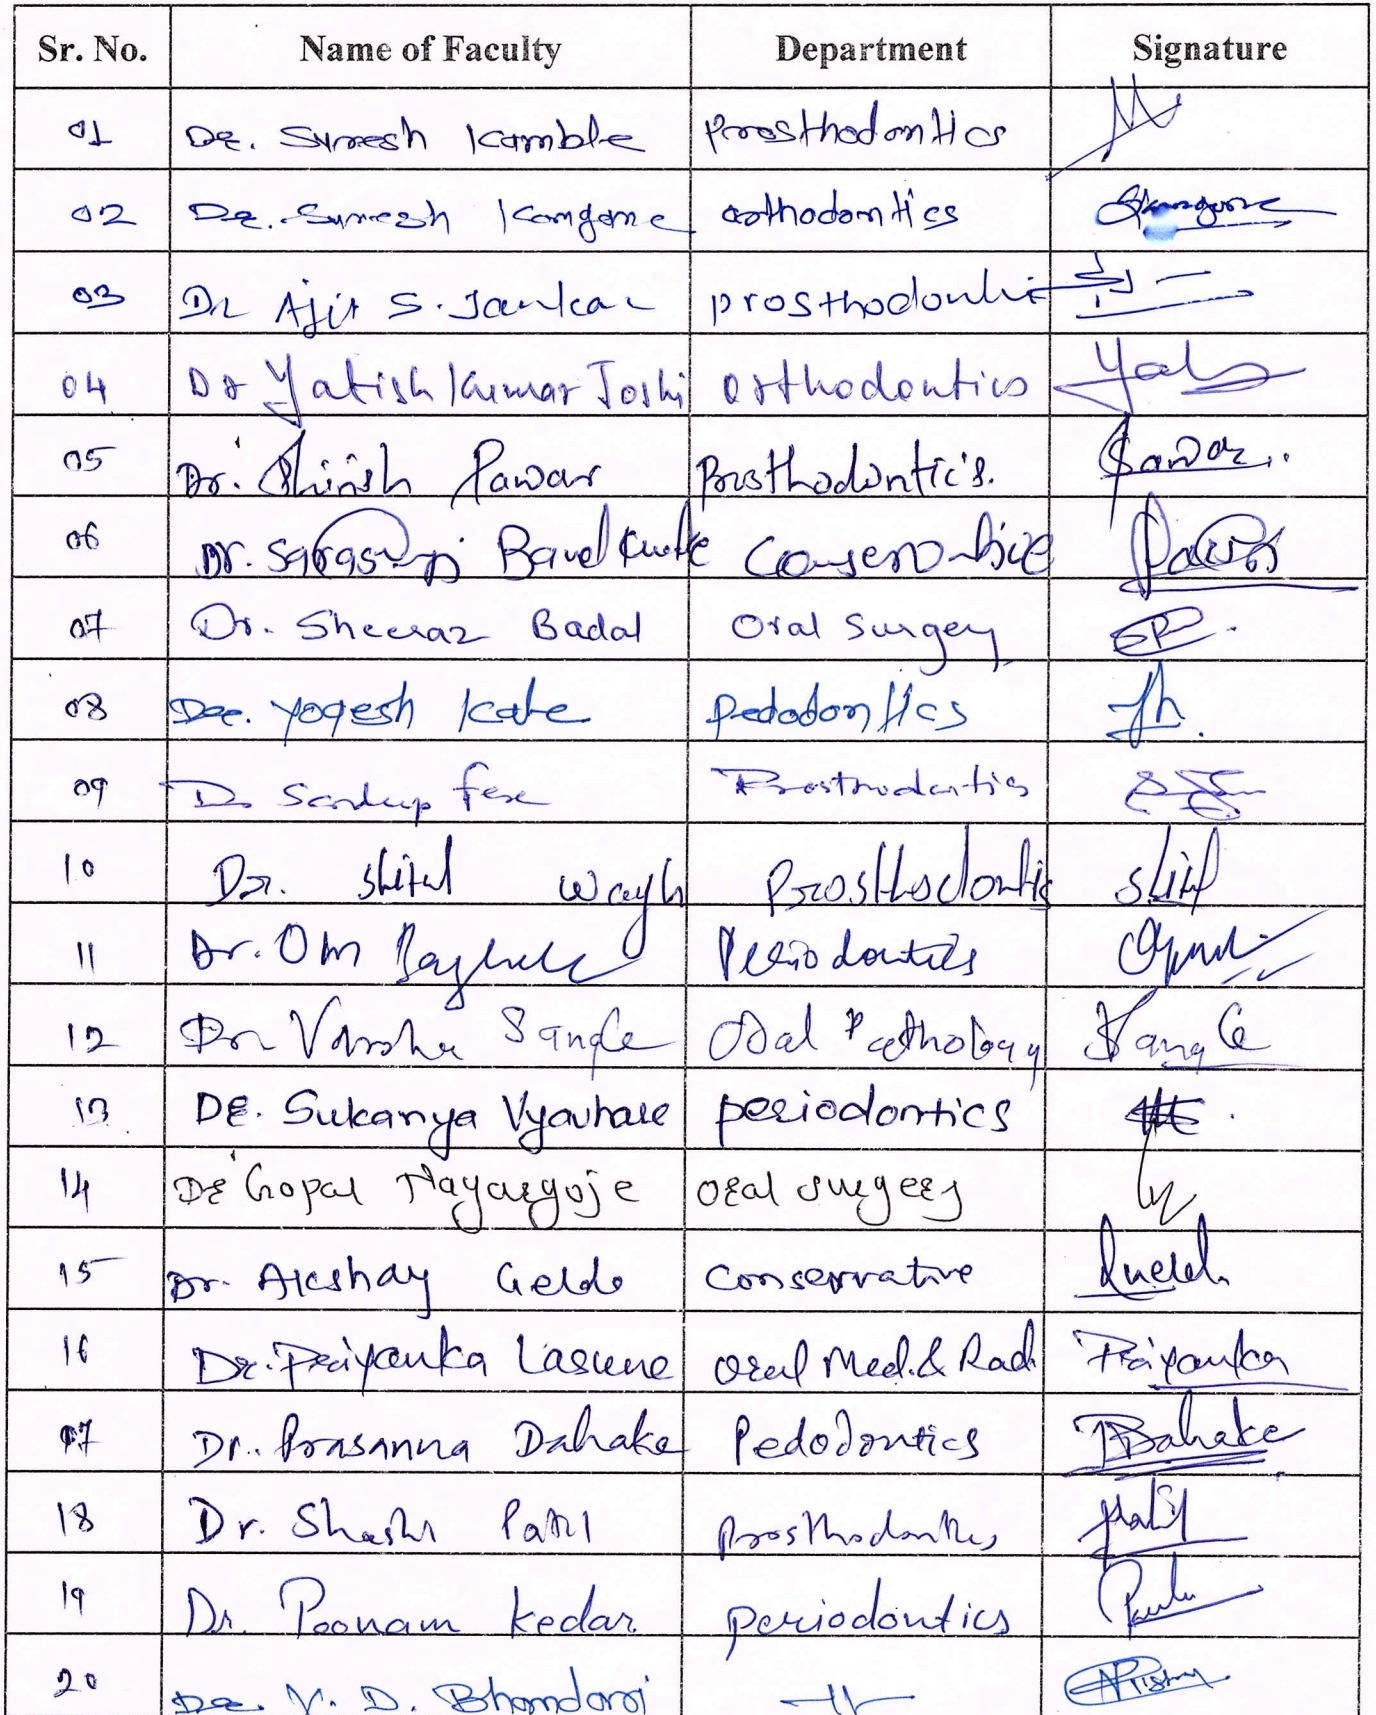 Sr. No. Name of Faculty Department Signature
01 Dr. Suresh Kamble Prosthodontics
02 Dr. Suresh Kangane Orthodontics Skangane
03 Dr Ajit S. Jankar prosthodontic
04 Dr Yatish Kumar Joshi Orthodontics
05 Dr. Shirish Pawar Prosthodontics. Pawar
06 Dr. Conservative
07 Dr. Sheeraz Badal Oral Surgery
08 Dr. Yogesh Kale Pedodontics
09 Dr Sandeep Prosthodontics
10 Dr. Shital Wagh Prosthodontis Shital
11 Dr. Om Baghele Periodontics
12 Dr Varsha Sangle Oral Pathology Sangle
13 Dr. Sukanya Vyavhare periodontics
14 Dr Gopal Nagargoje Oral Surgery
15 Dr. Akshay Gelda Conservative
16 Dr. Priyanka Lasune Oral Med. & Rad. Priyanka
17 Dr. Prasanna Dahake Pedodontics PDahake
18 Dr. Shashi Patil Prosthodontics Patil
19 Dr. Poonam Kedar periodontics
20 Dr. V. D. Bhandari -11-